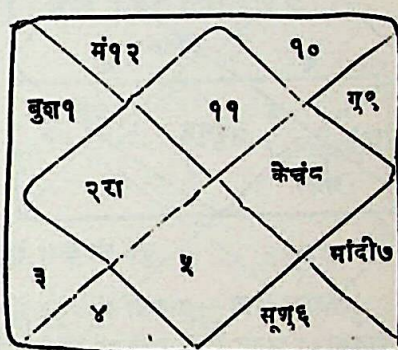 मं१२ १०
बुश१ ११ गु९
२रा केचंद
मांदी७
३ ५
४ सूशु६